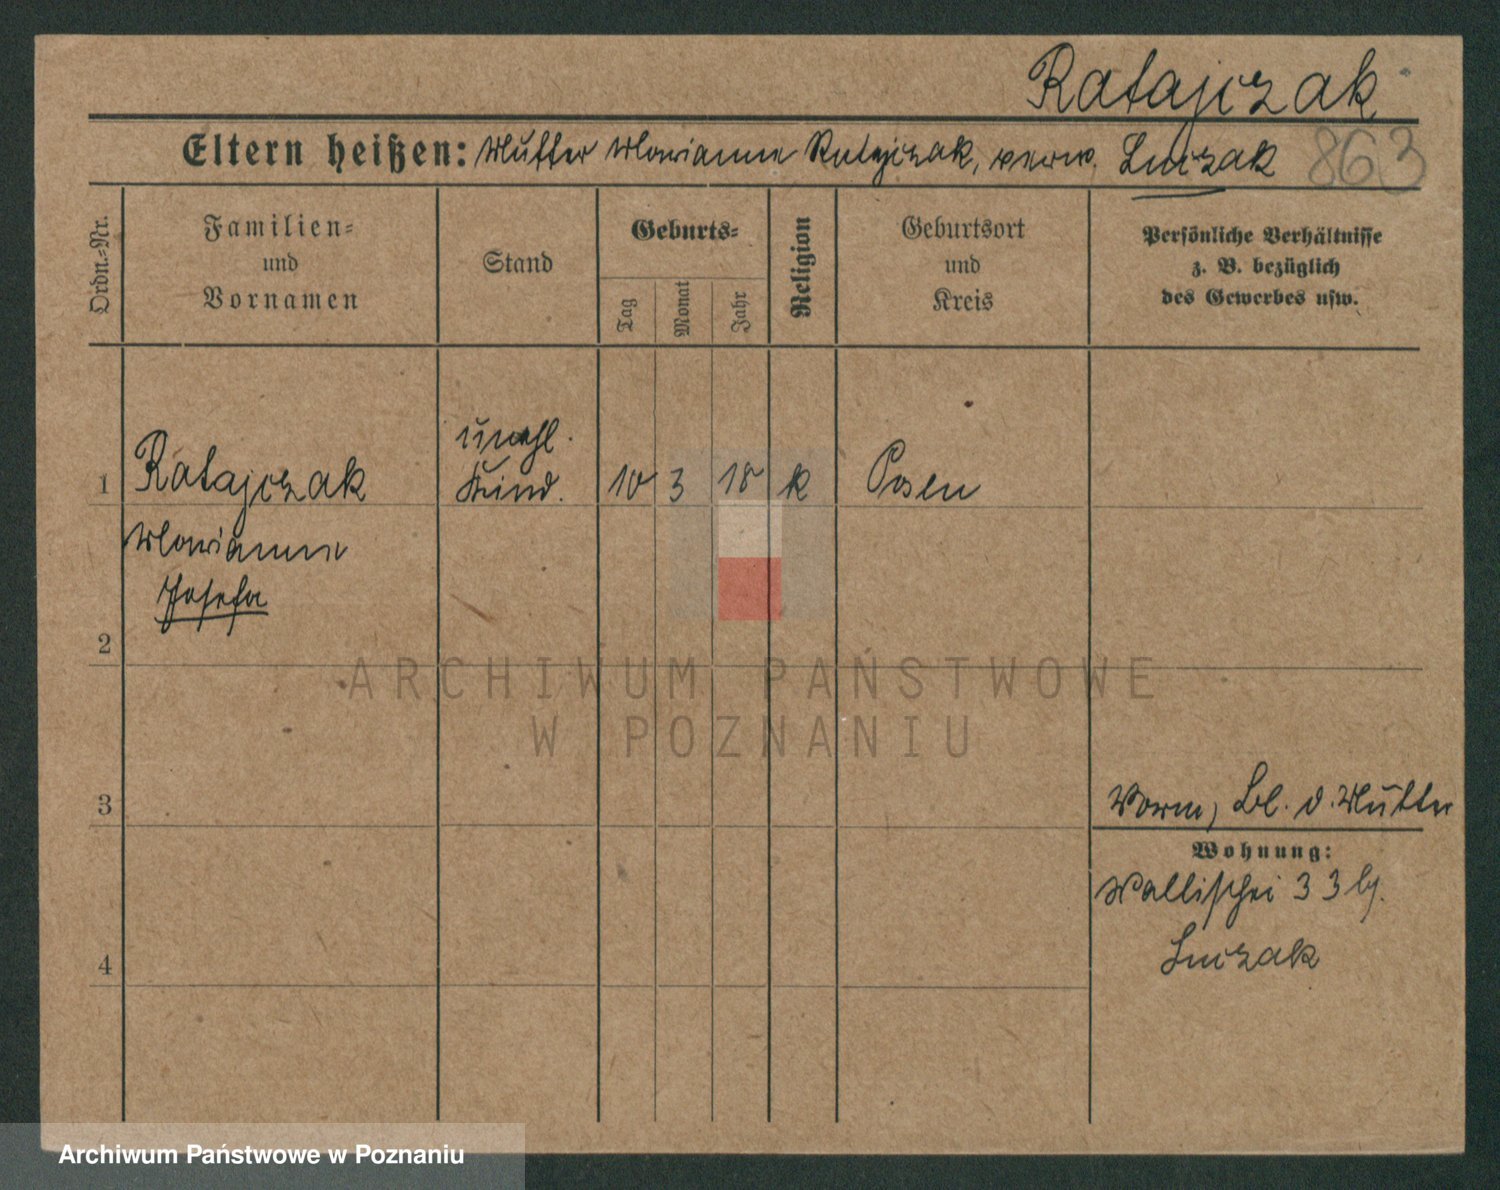 Ratajczak
Eltern heißen: Mutter Marianne Ratajczak, verw. Luczak 863
Ordn.=Nr.
Familien=
und
Vornamen
Stand
Geburts=
Tag
Monat
Jahr
Religion
Geburtsort
und
Kreis
Persönliche Verhältnisse
z. B. bezüglich
des Gewerbes usw.
1 Ratajczak
unehl.
Kind.
10 3 18 k Posen
Marianne
Josefa
2
3
Vorm, Bl. d. Mutter
Wohnung:
Wallischei 33 bj.
Luczak
4
ARCHIWUM PAŃSTWOWE
W POZNANIU
Archiwum Państwowe w Poznaniu